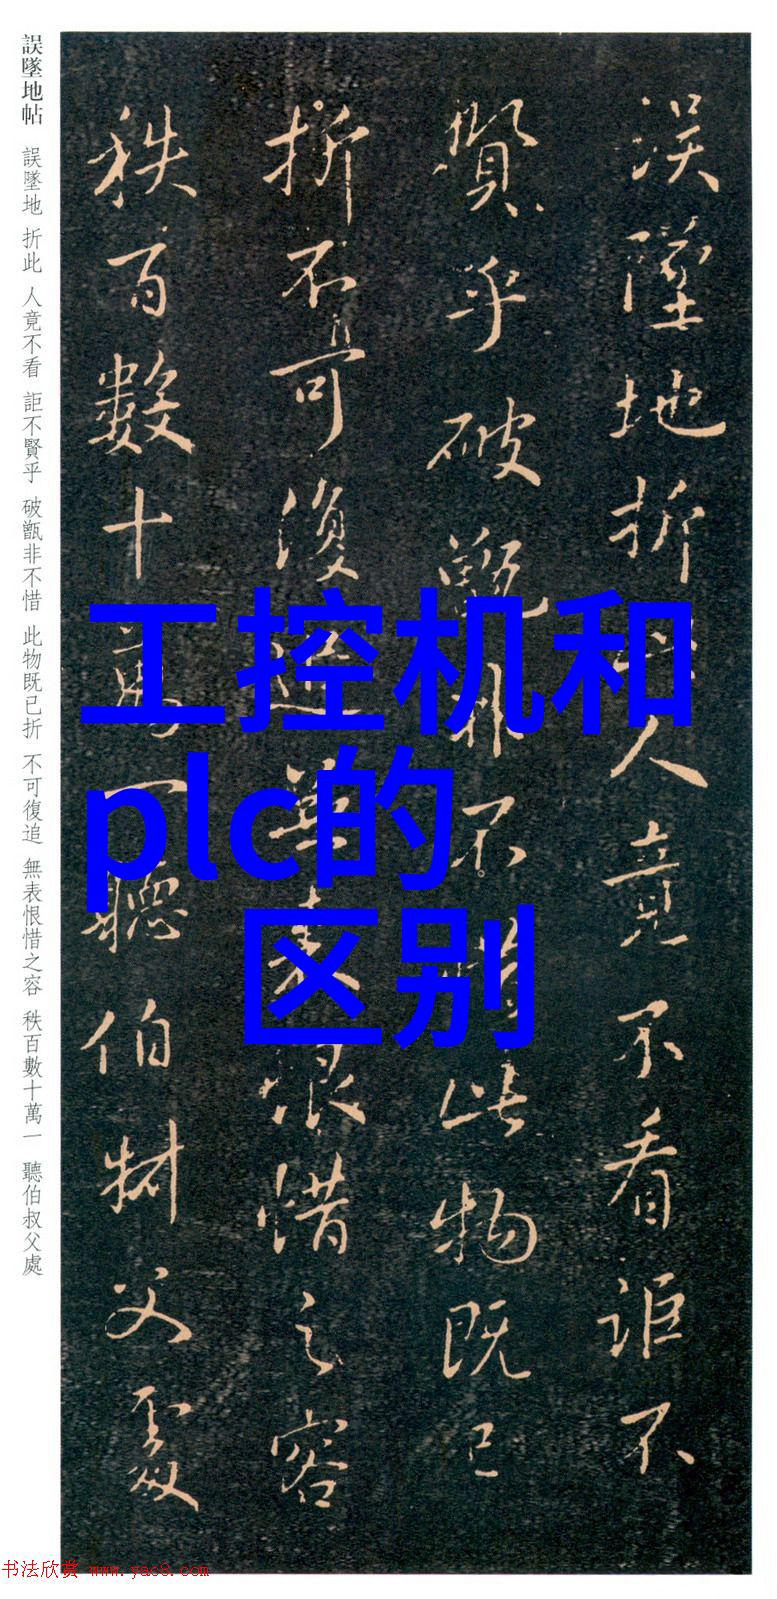 誤墜地折此人竟不看詎不
賢乎破甑非不惜此物既已
折不可復追無表恨惜之容
秩百數十萬一聽伯叔父處
誤墜地帖 誤墜地 折此 人竟不看 詎不賢乎 破甑非不惜 此物既已折 不可復追 無表恨惜之容 秩百數十萬一 聽伯叔父處
工控机和
plc的
区别
书法欣赏 www.yac8.com